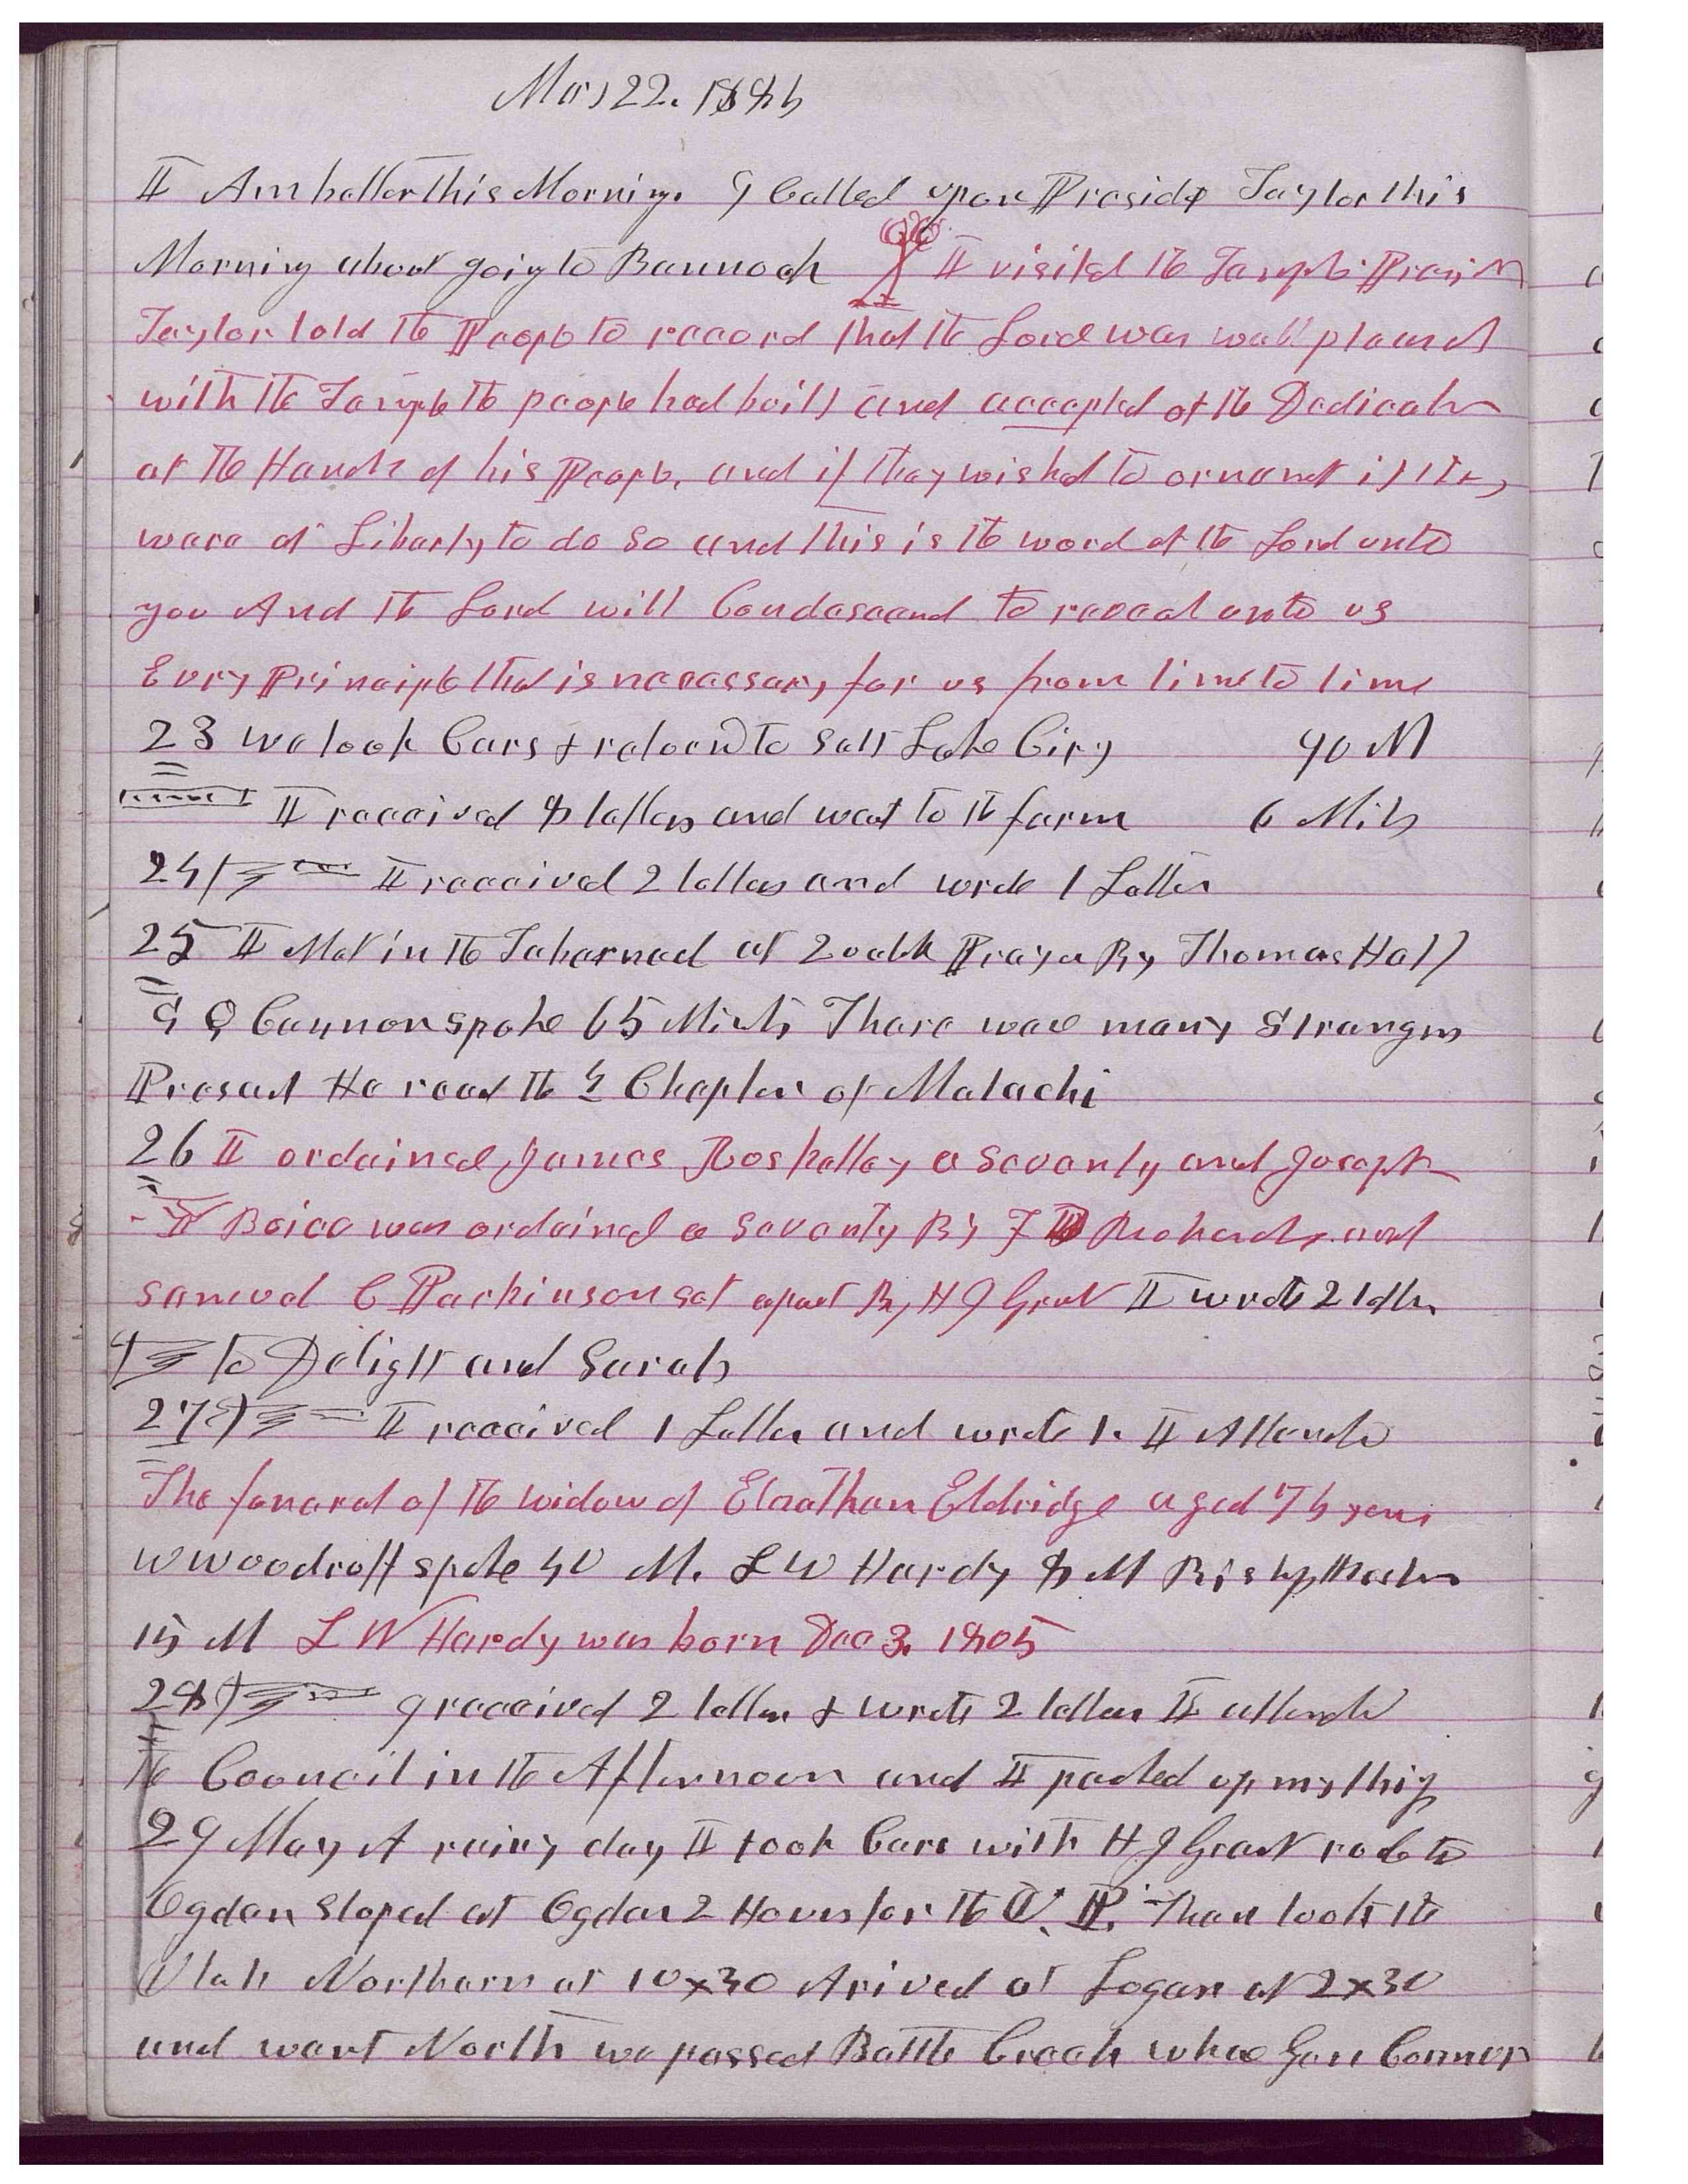 May 22. 1884
I Am better this Morning. I Called upon Presidt Taylor this
Morning about going to Bannock I visited the Temple Presidt
Taylor told the People to record that the Lord was well pleased
with the Temple the people had built and accepted of the Dedication
at the Hands of his People, and if they wished to ornament it they
ware at Liberty to do so and this is the word of the Lord unto
you And the Lord will Condescend to reveal unto us
Evry Principle that is necessary for us from time to time
23 we took Cars & returned to Salt Lake City 90 M
I received 8 letters and went to the farm 6 Mils
24 I received 2 letters and wrote 1 Letter
25 I Met in the Tabernacl at 2 oclk Prayer By Thomas Hall
G Q Cannon spoke 65 Mints Thare ware many Strangers
Present He read the 4 Chapter of Malachi
26 I ordained James Roskelley a Seventy and Joseph
Boice was ordained a Seventy By F D Richards and
Samuel C Parkinson set apart By H J Grant I wrote 2 letters
to Delight and Sarah
27 I received 1 Letter and wrote 1. I Attended
The funeral of the widow of Elnathan Eldridge aged 74 years
W Woodruff spoke 40 M. L W Hardy 8 M Bishop
15 M L W Hardy was born Dec 3. 1805
28 I received 2 letters & wrote 2 letters I attended
the Council in the Afternoon and I packed up my things
29 May A rainy day I took Cars with H J Grant rode to
Ogden Stoped at Ogden 2 Hours for the U. P. Then took the
Utah Northern at 10x30 Arived at Logan at 2x30
and went North we passed Battle Creek whare Gen Connor